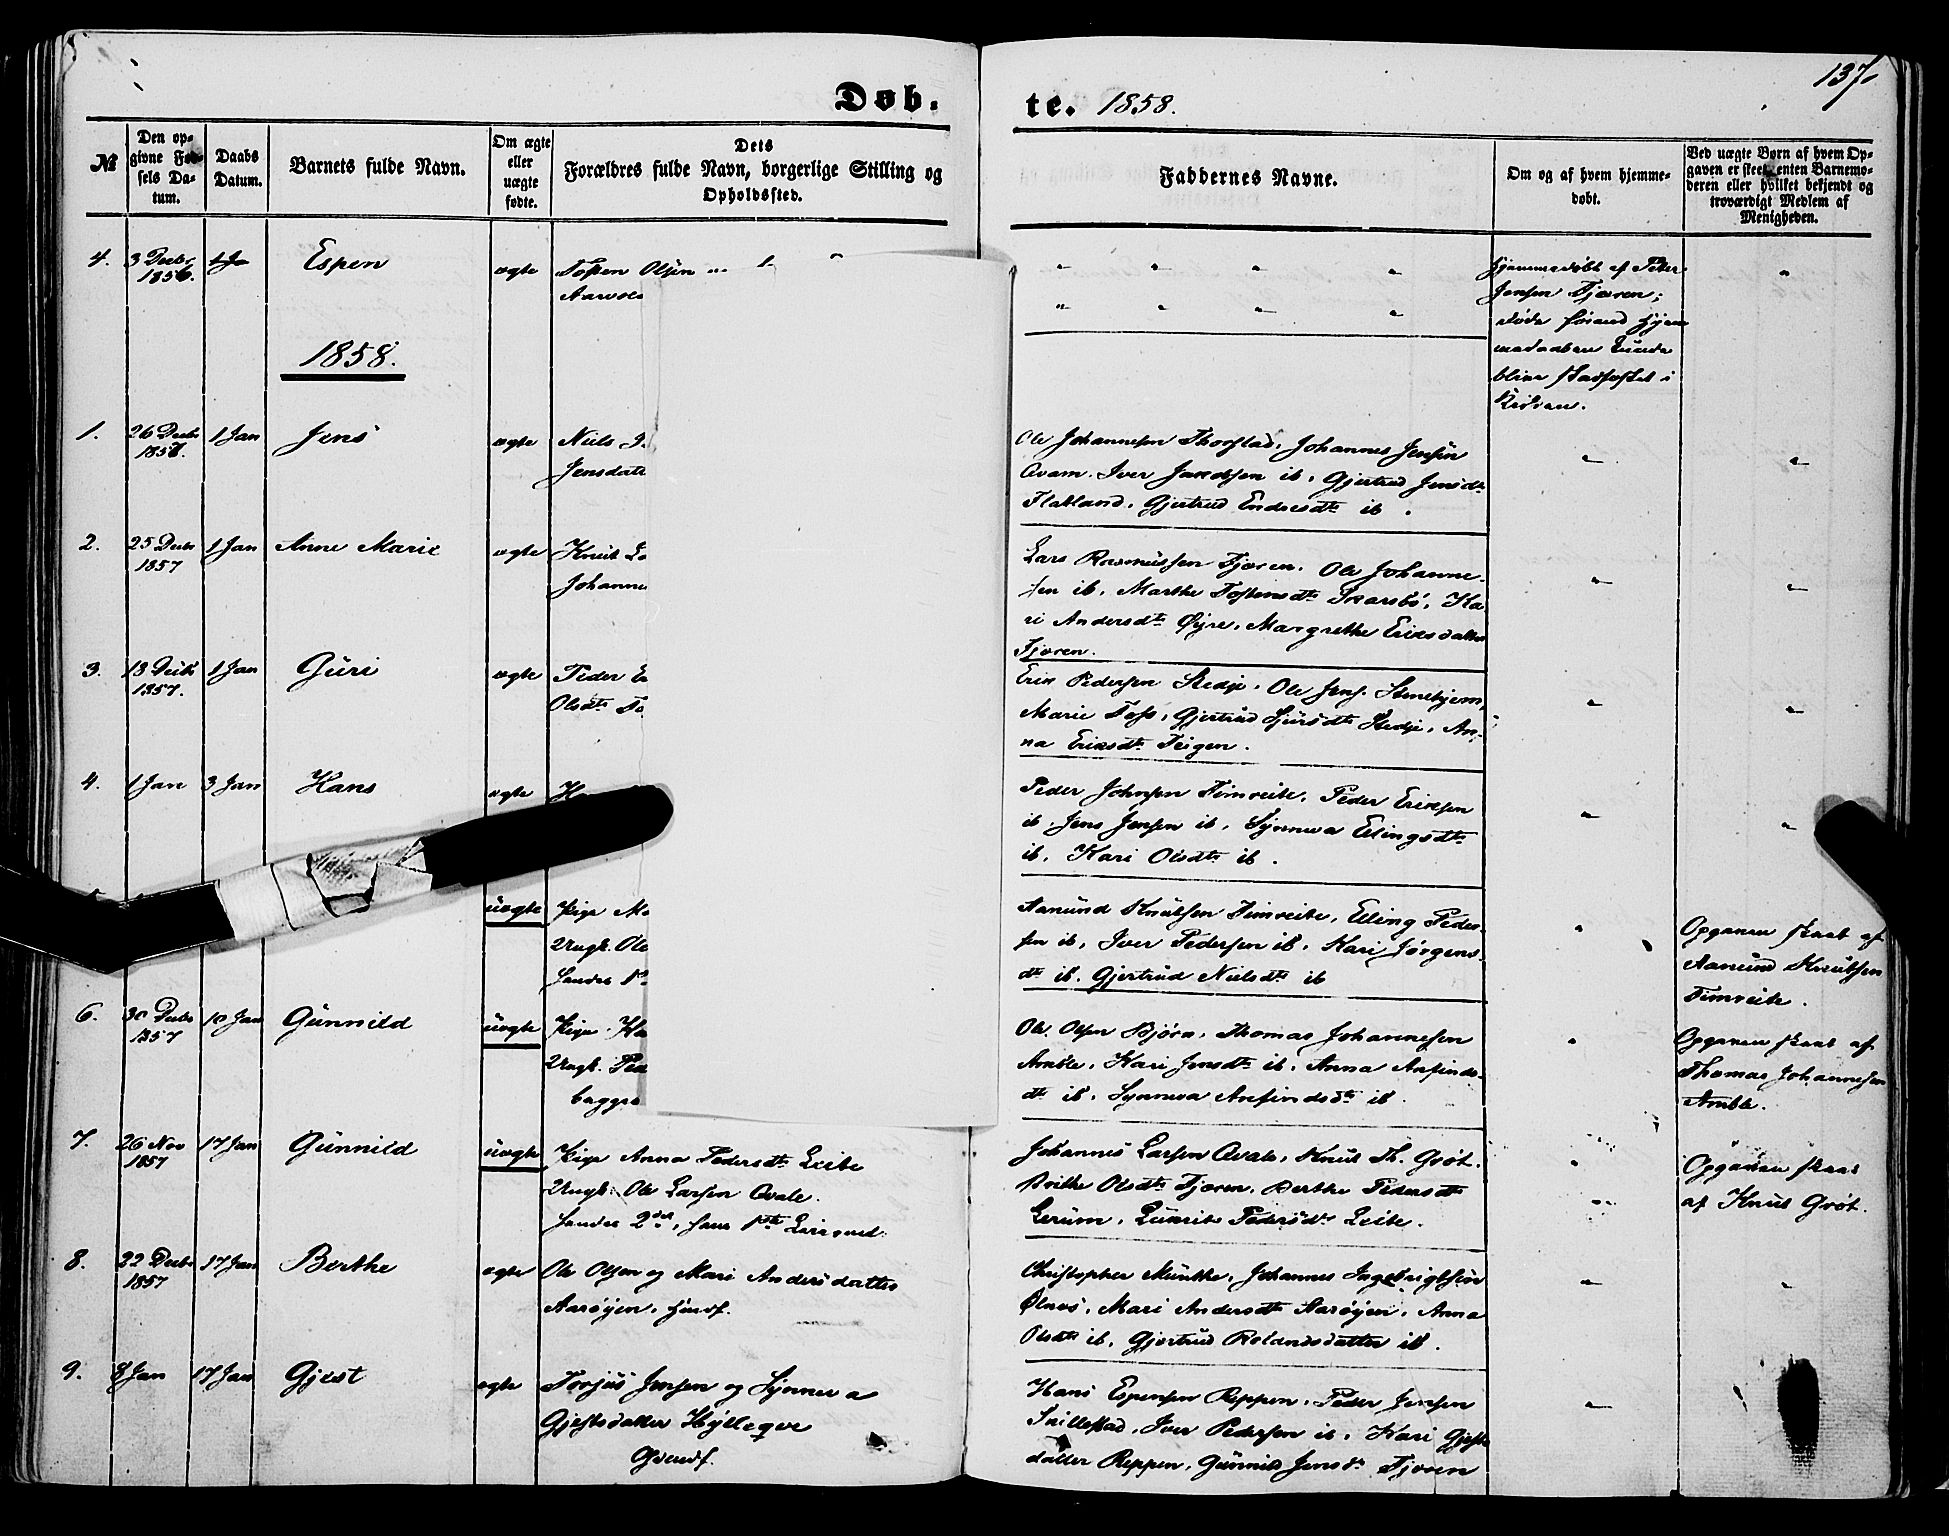 137.
Døb-
te. 1858.
№
Den op-
givne Fød-
sels Da-
tum.
Daabs
Datum.
Barnets fulde Navn.
Om ægte
eller
uægte
fødte.
Dets
Forældres fulde Navn, borgerlige Stilling og
Opholdssted.
Faddernes Navne.
Om og af hvem hjemme-
døbt.
Ved uægte Børn af hvem Op-
gaven er skeet, enten Barnemo-
deren eller hvilket bekjendt og
troværdigt Medlem af
Menigheden.
4. 3 Decbr 1 Ja Espen ægte Tosten Olsen
Hjemmedøbt af Peder
Jensen Fjæren;
døde førend Hjem-
medaaben kunde
blive stadfæstet i
Kirken.
1858.
1. 26 Decbr 1857. 1 Jan Jens ægte Niels
Jensdatt
Ole Johannesen Thorstad, Johannes Jensen
Qvam. Iver Jacobsen ib, Gjertrud Jensdtr
Flatland, Gjertrud Endresdtr ib.
2. 25 Decbr 1857 1 Jan Anne Marie ægte Knut La
Johanne
Lars Rasmussen Fjæren. Ole Johanne-
sen ib. Marthe Tostensdtr Skarsbø, Ka-
ri Andersdtr Øyre, Margrethe Eriksdatter
Fjæren.
3. 13 Decbr 1857. 1 Jan Guri ægte Peder Er
Olsdtr
Erik Pedersen Stedje. Ole Jens. Stenehjem,
Marie Foss, Gjertrud Sjursdtr Stedje, An-
na Eriksdtr Teigen.
4. 1 Jan 3 Jan Hans ægte
Peder Johnsen Timreite, Peder Eriksen
ib. Jens Jensen ib, Synneva Ellingsdtr
ib. Kari Olsdtr ib.
uægte Pige
Ungk. Ole
Aamund Knutsen Timreite, Elling Peder-
sen ib, Iver Pedersen ib. Kari Jørgens-
dtr ib. Gjertrud Nielsdtr ib
Opgaven skeet af
Aamund Knutsen
Timreite.
6. 30 Decbr 1857 10 Jan Gunnild uægte Pige. Ka
Ungk. Ped
Ole Olsen Bjørn, Thomas Johannesen
Amble. Kari Jensdtr ib. Anna Anfinds-
dtr ib. Synneva Anfindsdtr ib.
Opgaven skeet af
Thomas Johannesen
Amble.
7. 26 Nov 1857 17 Jan Gunnild uægte Pige Anna Pedersdtr Leite
Ungk. Ole Larsen Qvale.
hendes 2det, hans 1ste Leiermaal
Johannes Larsen Qvale, Knut Th. Grøt.
Brithe Olsdtr Fjæren. Berthe Pedersdtr
Lerum. Pedersdtr Leite.
Opgaven skeet
af Knut Grøt.
8. 22 Decbr 1857 17 Jan Berthe ægte Ole Olsen og Mari Andersdatter
Aarøyen. Husf.
Christopher Munthe, Johannes Ingebrigtsen
Ølnes, Mari Andersdtr Aarøyen, Anna
Olsdtr ib, Gjertrud Rolandsdatter ib.
9. 8 Jan 17 Jan Gjest ægte Torjus Jensen og Synneva
Gjestsdatter
Gaardf.
Hans Espensen Reppen. Peder Jensen
Skillestad, Iver Pedersen ib. Kari Gjests-
datter Reppen, Gunnild Jensdr Fjæren